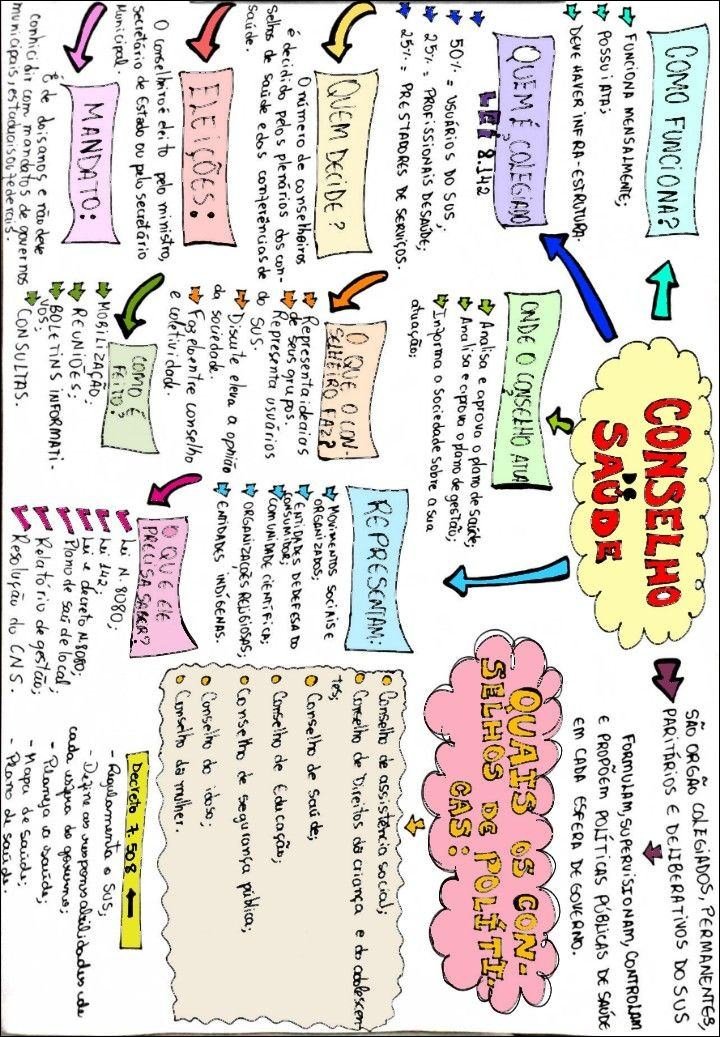 CONSELHO
DE
SAÚDE
SÃO ORGÃO COLEGIADOS, PERMANENTES,
PARITÁRIOS E DELIBERATIVOS DO SUS
FORMULAM, SUPERVISIONAM, CONTROLAM
E PROPÕEM POLÍTICAS PÚBLICAS DE SAÚDE
EM CADA ESFERA DE GOVERNO.
COMO FUNCIONA?
FUNCIONA MENSALMENTE;
POSSUI ATA;
DEVE HAVER INFRA-ESTRUTURA.
QUEM É COLEGIADO
LEI 8.142
50% = USUÁRIOS DO SUS;
25% = PROFISSIONAIS DE SAÚDE;
25% = PRESTADORES DE SERVIÇOS.
QUEM DECIDE?
O número de conselheiros
é decidido pelos plenários dos con-
selhos de saúde e das conferências de
saúde.
ELEIÇÕES:
O conselheiro é eleito pelo ministro,
Secretário de Estado ou pelo secretário
Municipal.
MANDATO:
É de dois anos e não deve
conhicidir com mandatos de governos
municipais, estaduais ou federais.
ONDE O CONSELHO ATUA
Analisa e aprova o plano de saúde;
Analisa e aprova o plano de gestão;
Informa a sociedade sobre a sua
atuação;
O QUE O CON-
SELHEIRO FAZ?
Representa ideias
de seus grupos.
Representa usuários
do SUS.
Discute e leva a opnião
da sociedade.
Faz elo entre conselho
e coletividade.
COMO É
FEITO?
MOBILIZAÇÃO;
REUNIÕES;
BOLETINS INFORMATI-
VOS;
CONSULTAS.
REPRESENTAM:
MOVIMENTOS SOCIAIS E
ORGANIZADOS;
ENTIDADES DE DEFESA DO
CONSUMIDOR;
COMUNIDADE CIENTÍFICA;
ORGANIZAÇÕES RELIGIOSAS;
ENTIDADES INDÍGENAS.
O QUE ELE
PRECISA SABER?
Lei N. 8080;
Lei 142;
Lei e decreto N. 8080;
Plano de saúde local;
Relatório de gestão;
Resolução do CNS.
QUAIS OS CON-
SELHOS DE POLÍTI-
CAS:
Conselho de assistência social;
Conselho de Direitos da criança e do adolescen
tes;
Conselho de saúde;
Conselho de Educação;
Conselho de segurança pública;
Conselho do idoso;
Conselho da mulher.
Decreto 7.508
- Regulamenta o SUS;
- Define as responsabilidades de
cada esfera do governo;
- Planeja a saúde;
- Mapa de saúde;
- Plano de saúde.